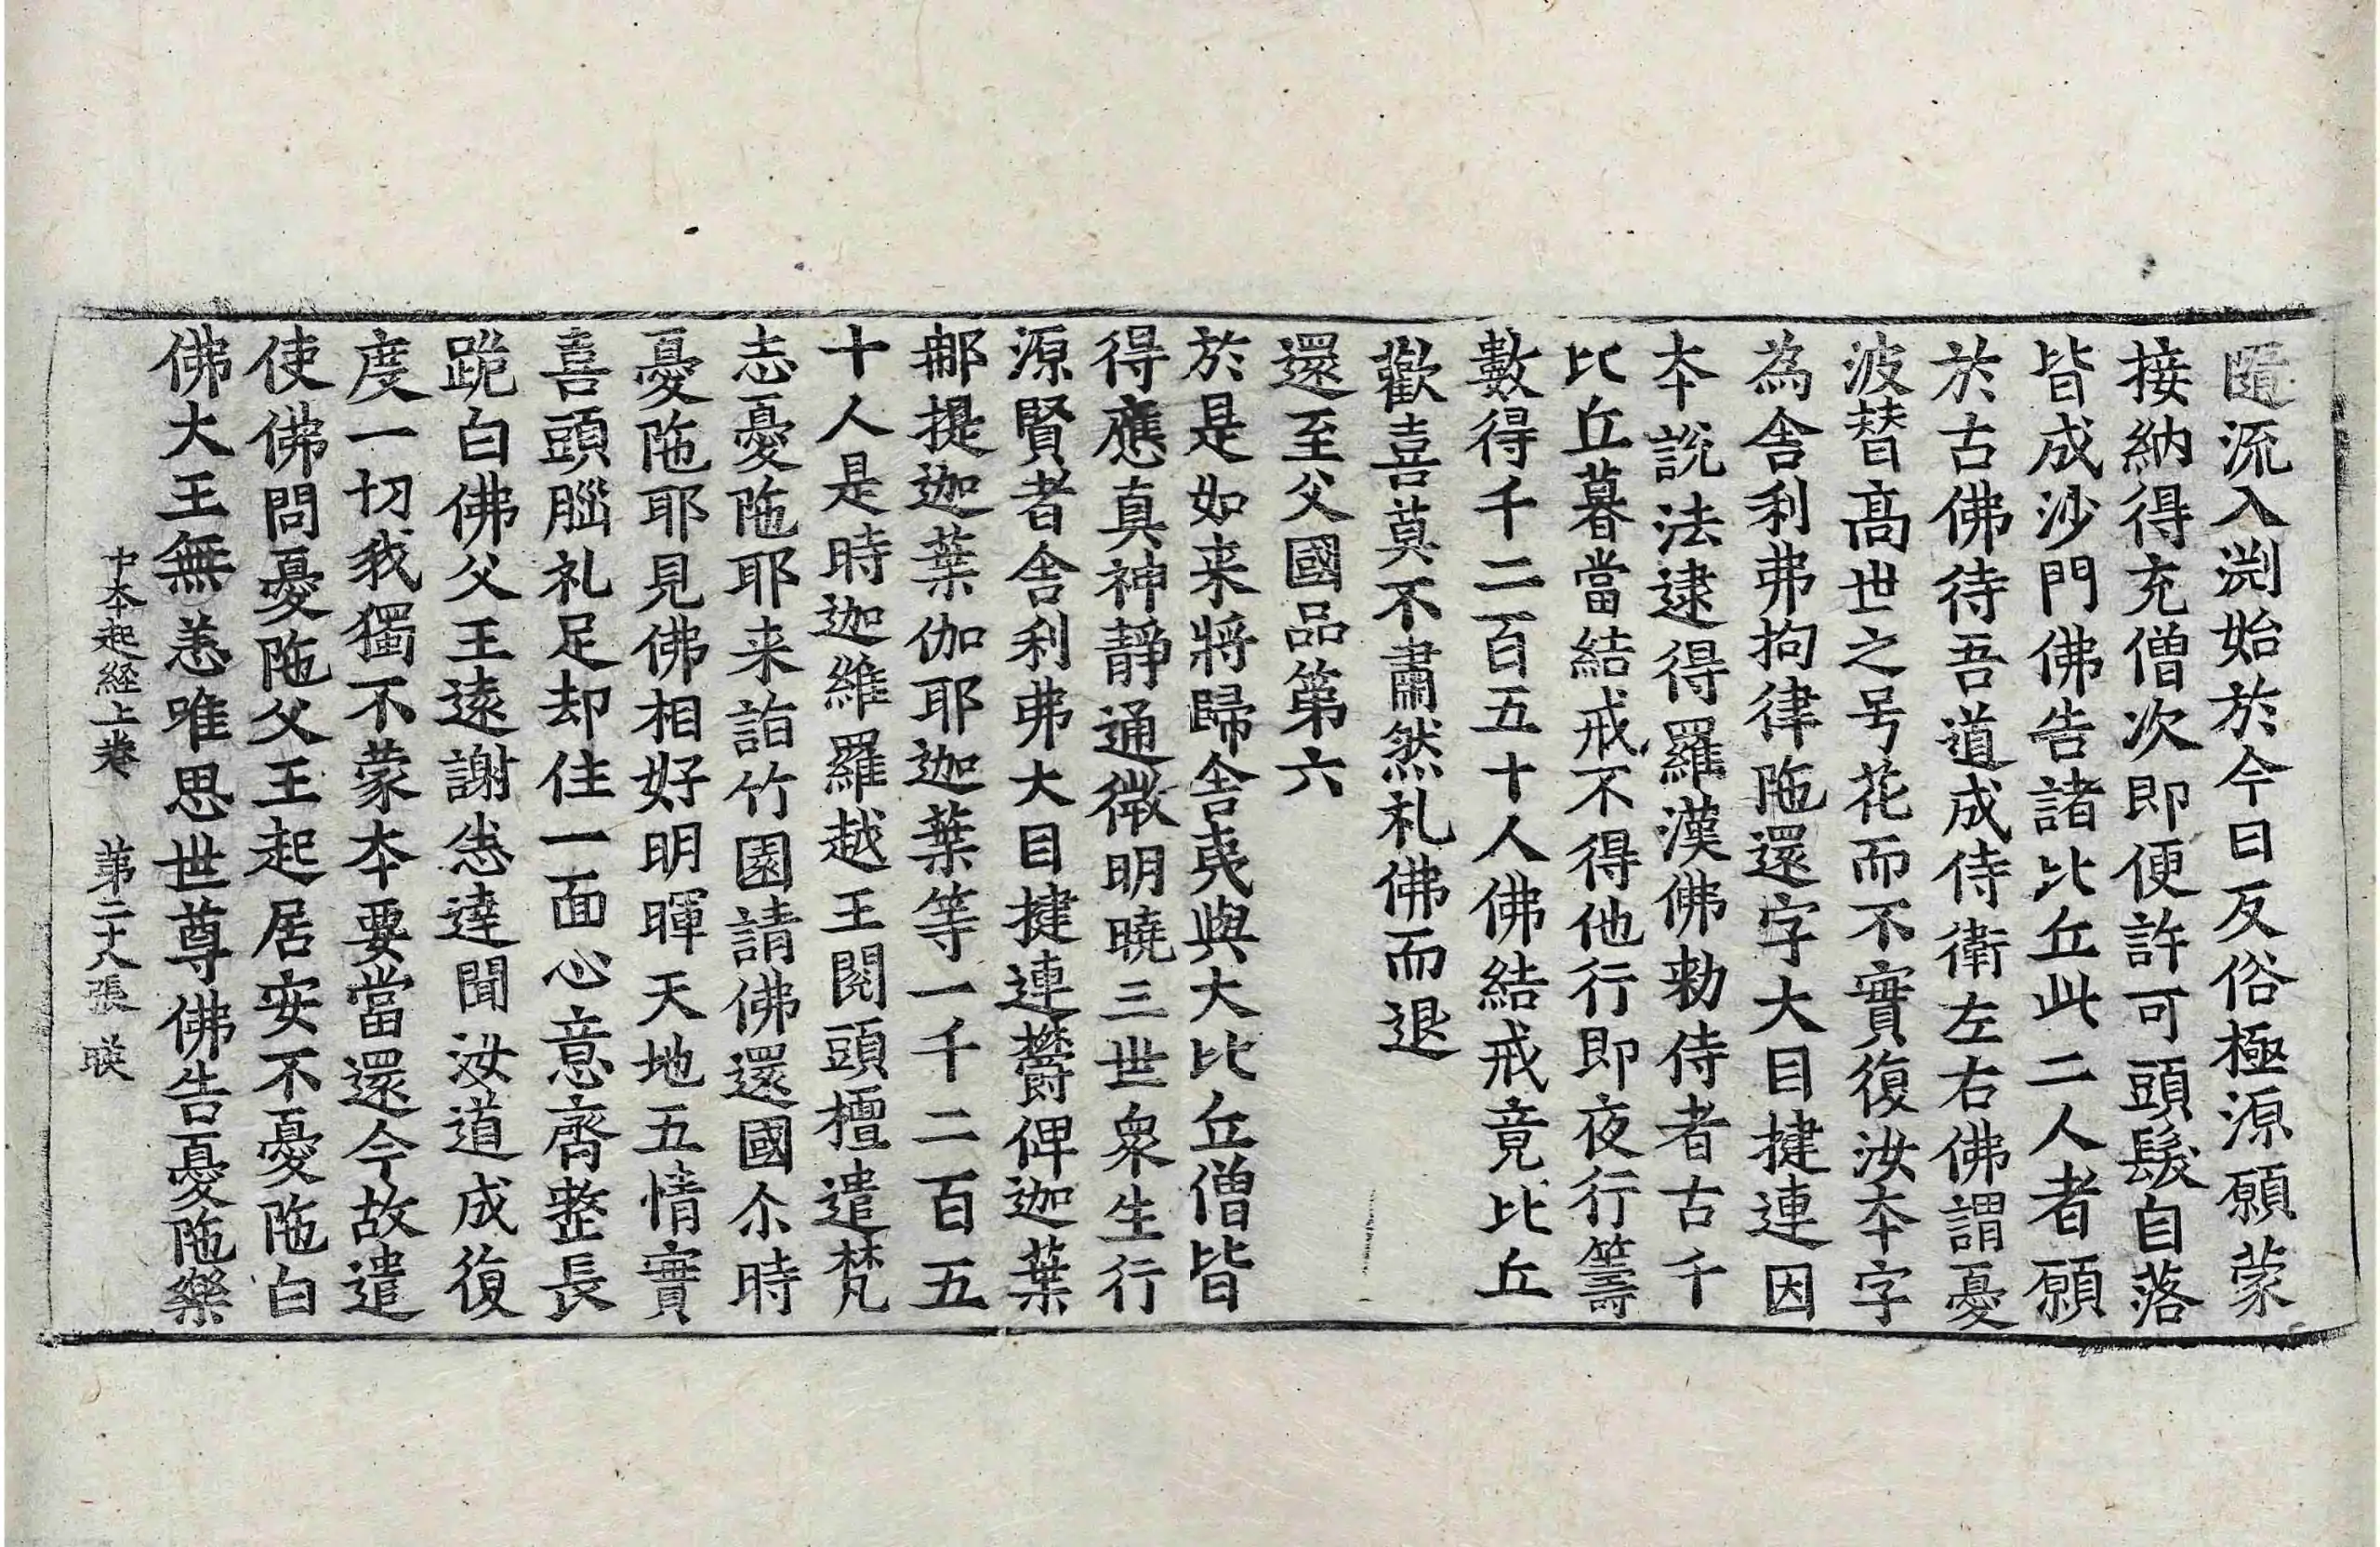 匿流入渕始於今日反俗極源願蒙
接納得充僧次即便許可頭髮自落
皆成沙門佛告諸比丘此二人者願
於古佛待吾道成侍衛左右佛謂憂
波替高世之号花而不實復汝本字
為舍利弗拘律陁還字大目揵連因
本說法逮得羅漢佛勑侍者古千
比丘暮當結戒不得他行即夜行籌
數得千二百五十人佛結戒竟比丘
歡喜莫不肅然礼佛而退
還至父國品第六
於是如来將歸舍夷與大比丘僧皆
得應真神靜通微明曉三世衆生行
源賢者舍利弗大目揵連欝俾迦葉
郍提迦葉伽耶迦葉等一千二百五
十人是時迦維羅越王閱頭檀遣梵
志憂陁耶来詣竹園請佛還國尒時
憂陁耶見佛相好明暉天地五情實
喜頭腦礼足却住一面心意齊整長
跪白佛父王遠謝悉達聞汝道成復
度一切我獨不蒙本要當還今故遣
使佛問憂陁父王起居安不憂陁白
佛大王無恙唯思世尊佛告憂陁樂
中本起經上卷 第二十八張 暎